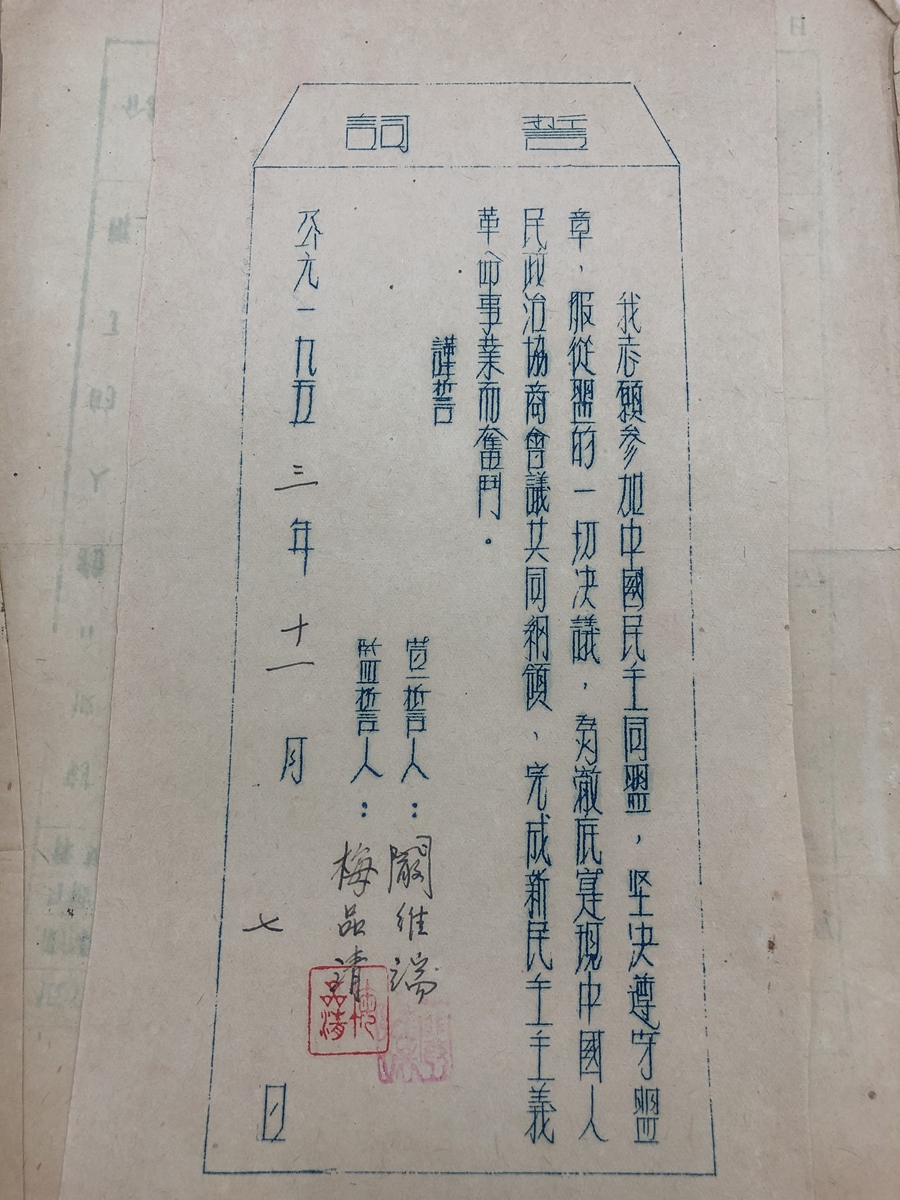 誓詞
我志願参加中國民主同盟，坚决遵守盟
章，服從盟的一切决議，為澈底实現中國人
民政治協商會議共同綱領、完成新民主主義
革命事業而奮鬥。
謹誓
宣誓人：嚴維端
監誓人：梅品清
公元一九五三年十一月七日